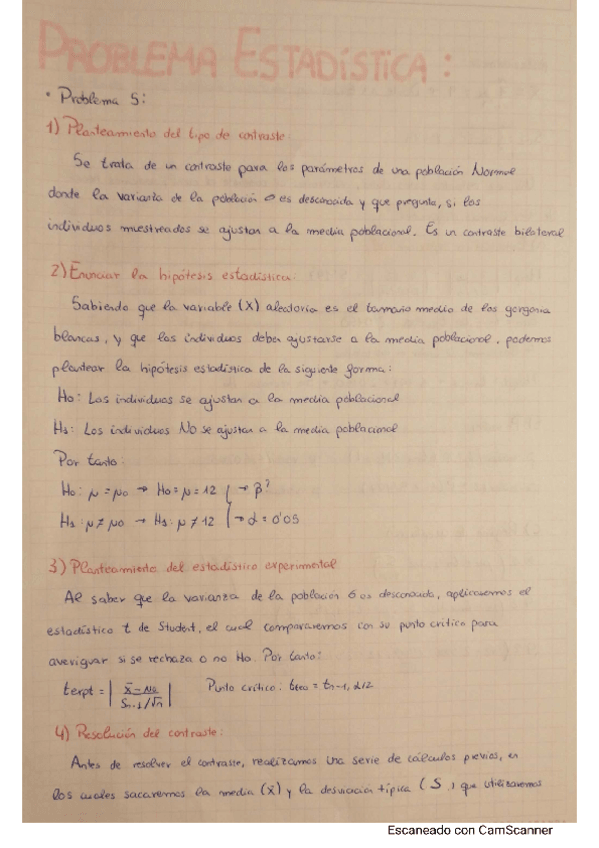 PROBLEMA ESTADÍSTICA:
• Problema 5:
1) Planteamiento del tipo de contraste:
Se trata de un contraste para los parámetros de una población Normal
donde la varianza de la población σ es desconocida y que pregunta, si los
individuos muestreados se ajustan a la media poblacional. Es un contraste bilateral
2) Enunciar la hipótesis estadística:
Sabiendo que la variable (X) aleatoria es el tamaño medio de las gorgonia
blancas, y que los individuos deben ajustarse a la media poblacional, podemos
plantear la hipótesis estadística de la siguiente forma:
Ho: Los individuos se ajustan a la media poblacional
H1: Los individuos NO se ajustan a la media poblacional
Por tanto:
Ho: μ = μo → Ho = μ = 12 → β?
H1: μ ≠ μo → H1: μ ≠ 12 → α = 0'05
3) Planteamiento del estadístico experimental
Al saber que la varianza de la población σ es desconocida, aplicaremos el
estadístico t de Student, el cual compararemos con su punto crítico para
averiguar si se rechaza o no Ho. Por tanto:
texpt = | x̄ - μo / Sn-1/√n | Punto crítico: tteo = tn-1, α/2
4) Resolución del contraste:
Antes de resolver el contraste, realizamos una serie de cálculos previos, en
los cuales sacaremos la media (x̄) y la desviación típica (S ) que utilizaremos
Escaneado con CamScanner